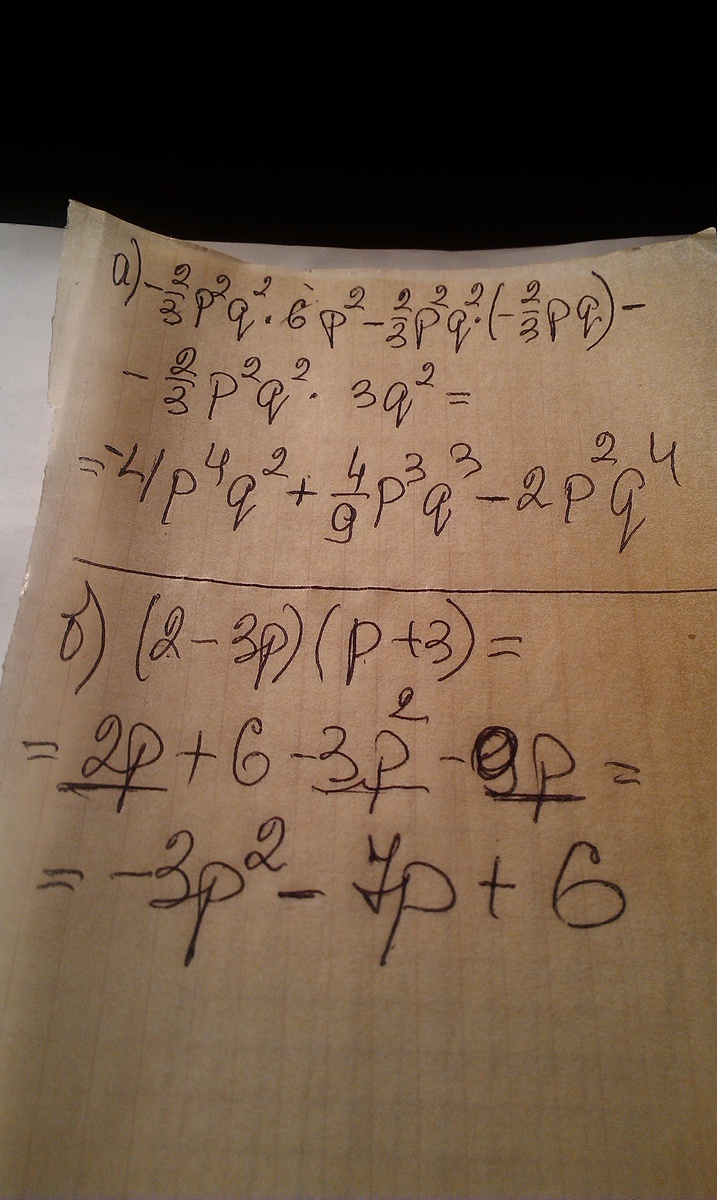 а) -2/3 p²q² · 6p² - 2/3 p²q² · (-2/3 pq) -
- 2/3 p²q² · 3q² =
= -4p⁴q² + 4/9 p³q³ - 2p²q⁴
б) (2 - 3p)(p + 3) =
= 2p + 6 - 3p² - 9p =
= -3p² - 7p + 6